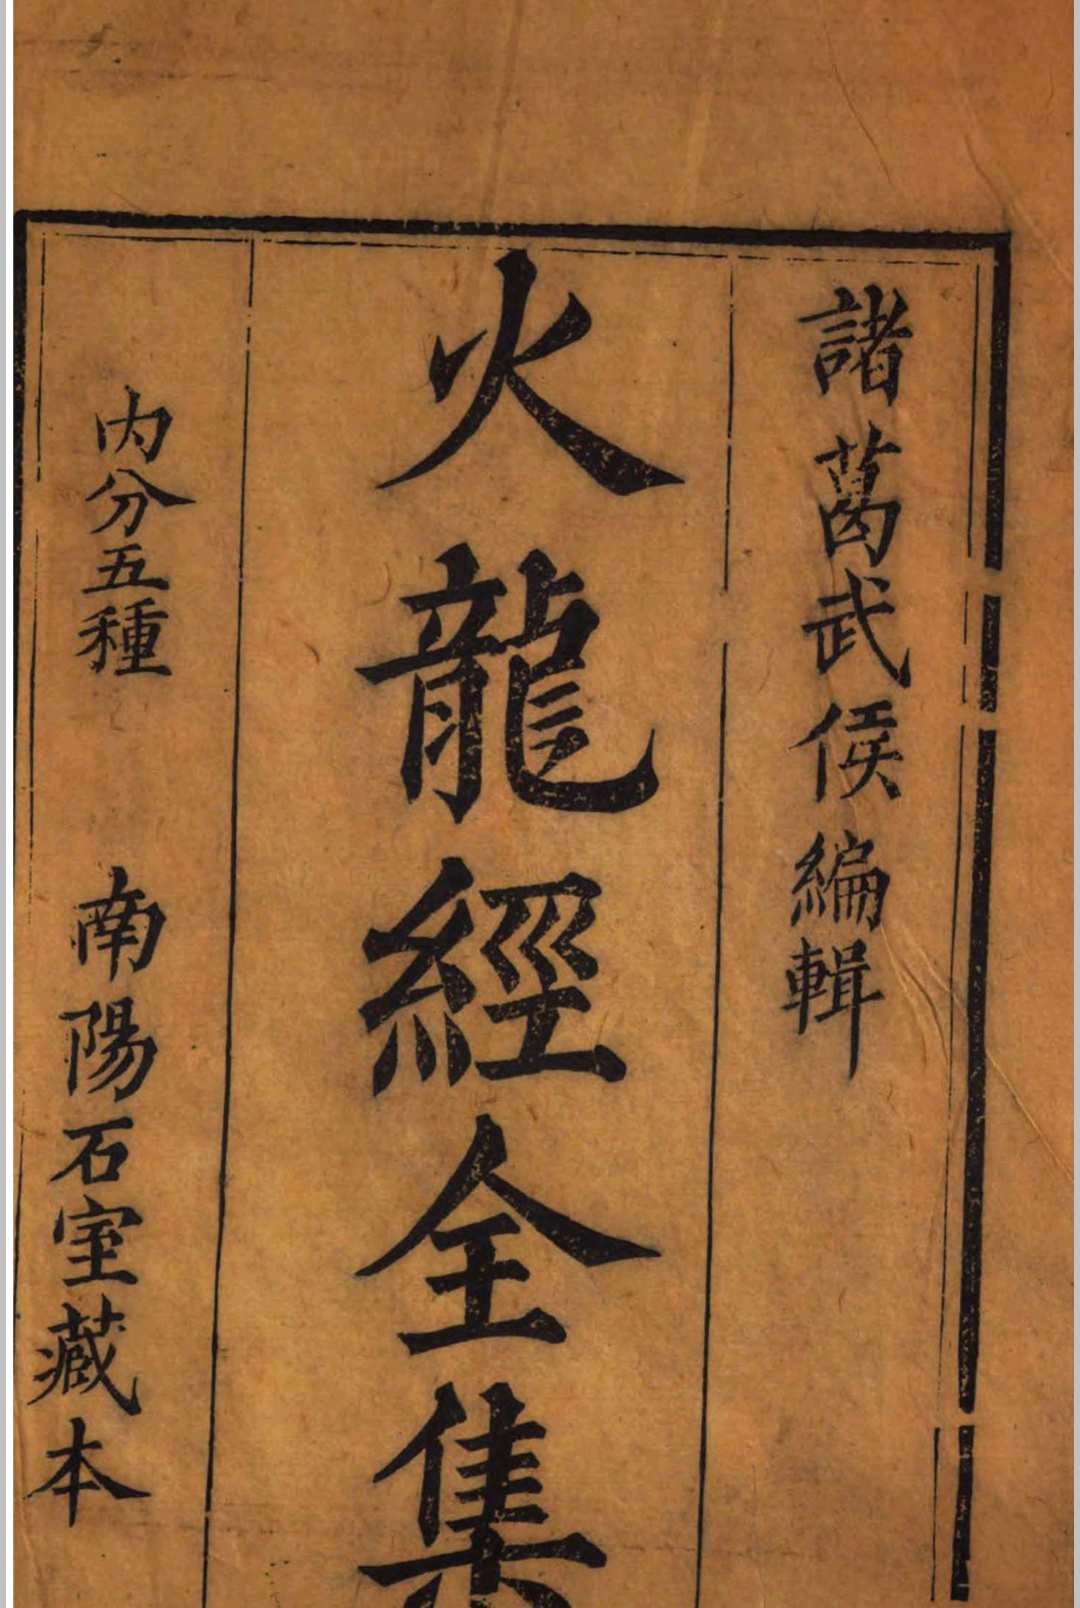 諸葛武侯編輯
火龍經全集
内分五種 南陽石室藏本